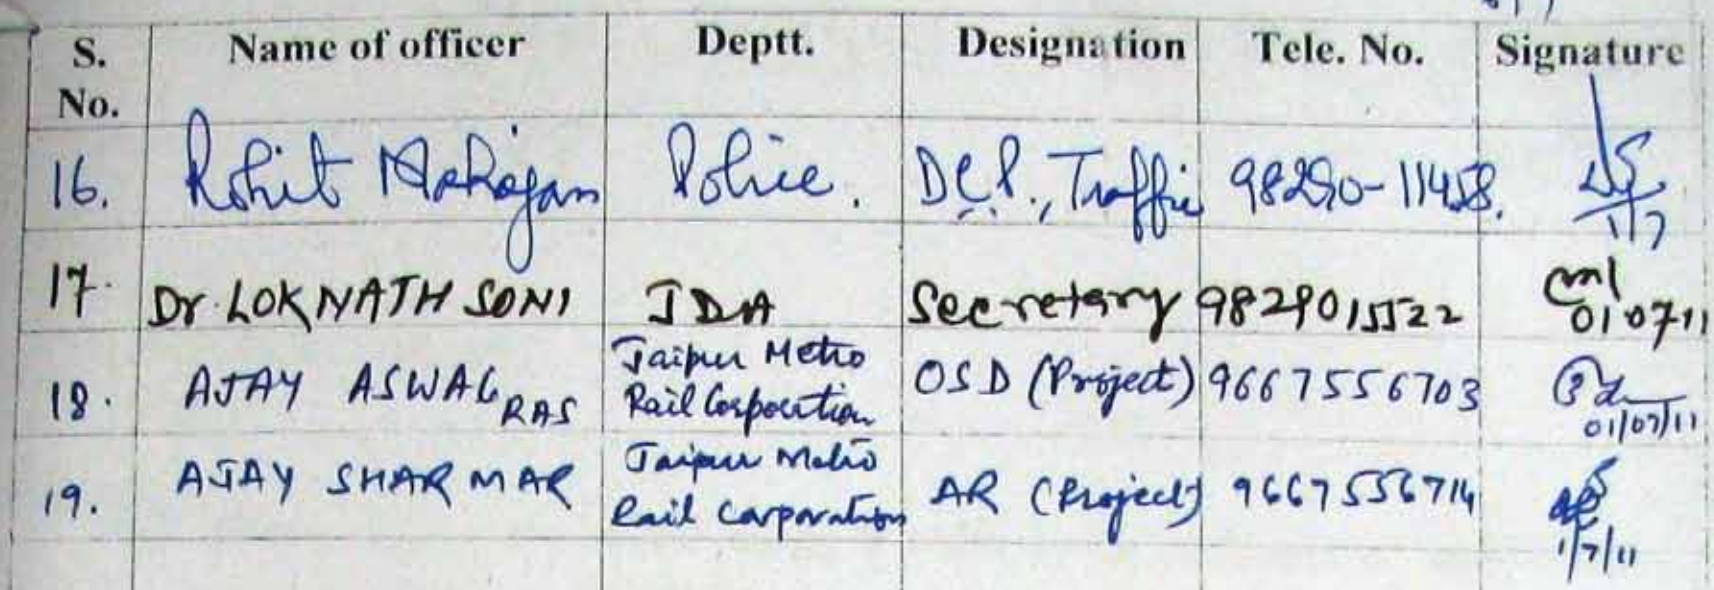 S. No. Name of officer Deptt. Designation Tele. No. Signature
16. Rohit Mahajan Police. D.C.P., Traffic 98290-11458. 1/7
17. Dr. LOKNATH SONI JDA Secretary 9829015522 01 07 11
18. AJAY ASWAL RAS Jaipur Metro Rail Corporation OSD (Project) 9667556703 01/07/11
19. AJAY SHARMAR Jaipur Metro Rail Corporation AR (Project) 9667556714 1/7/11